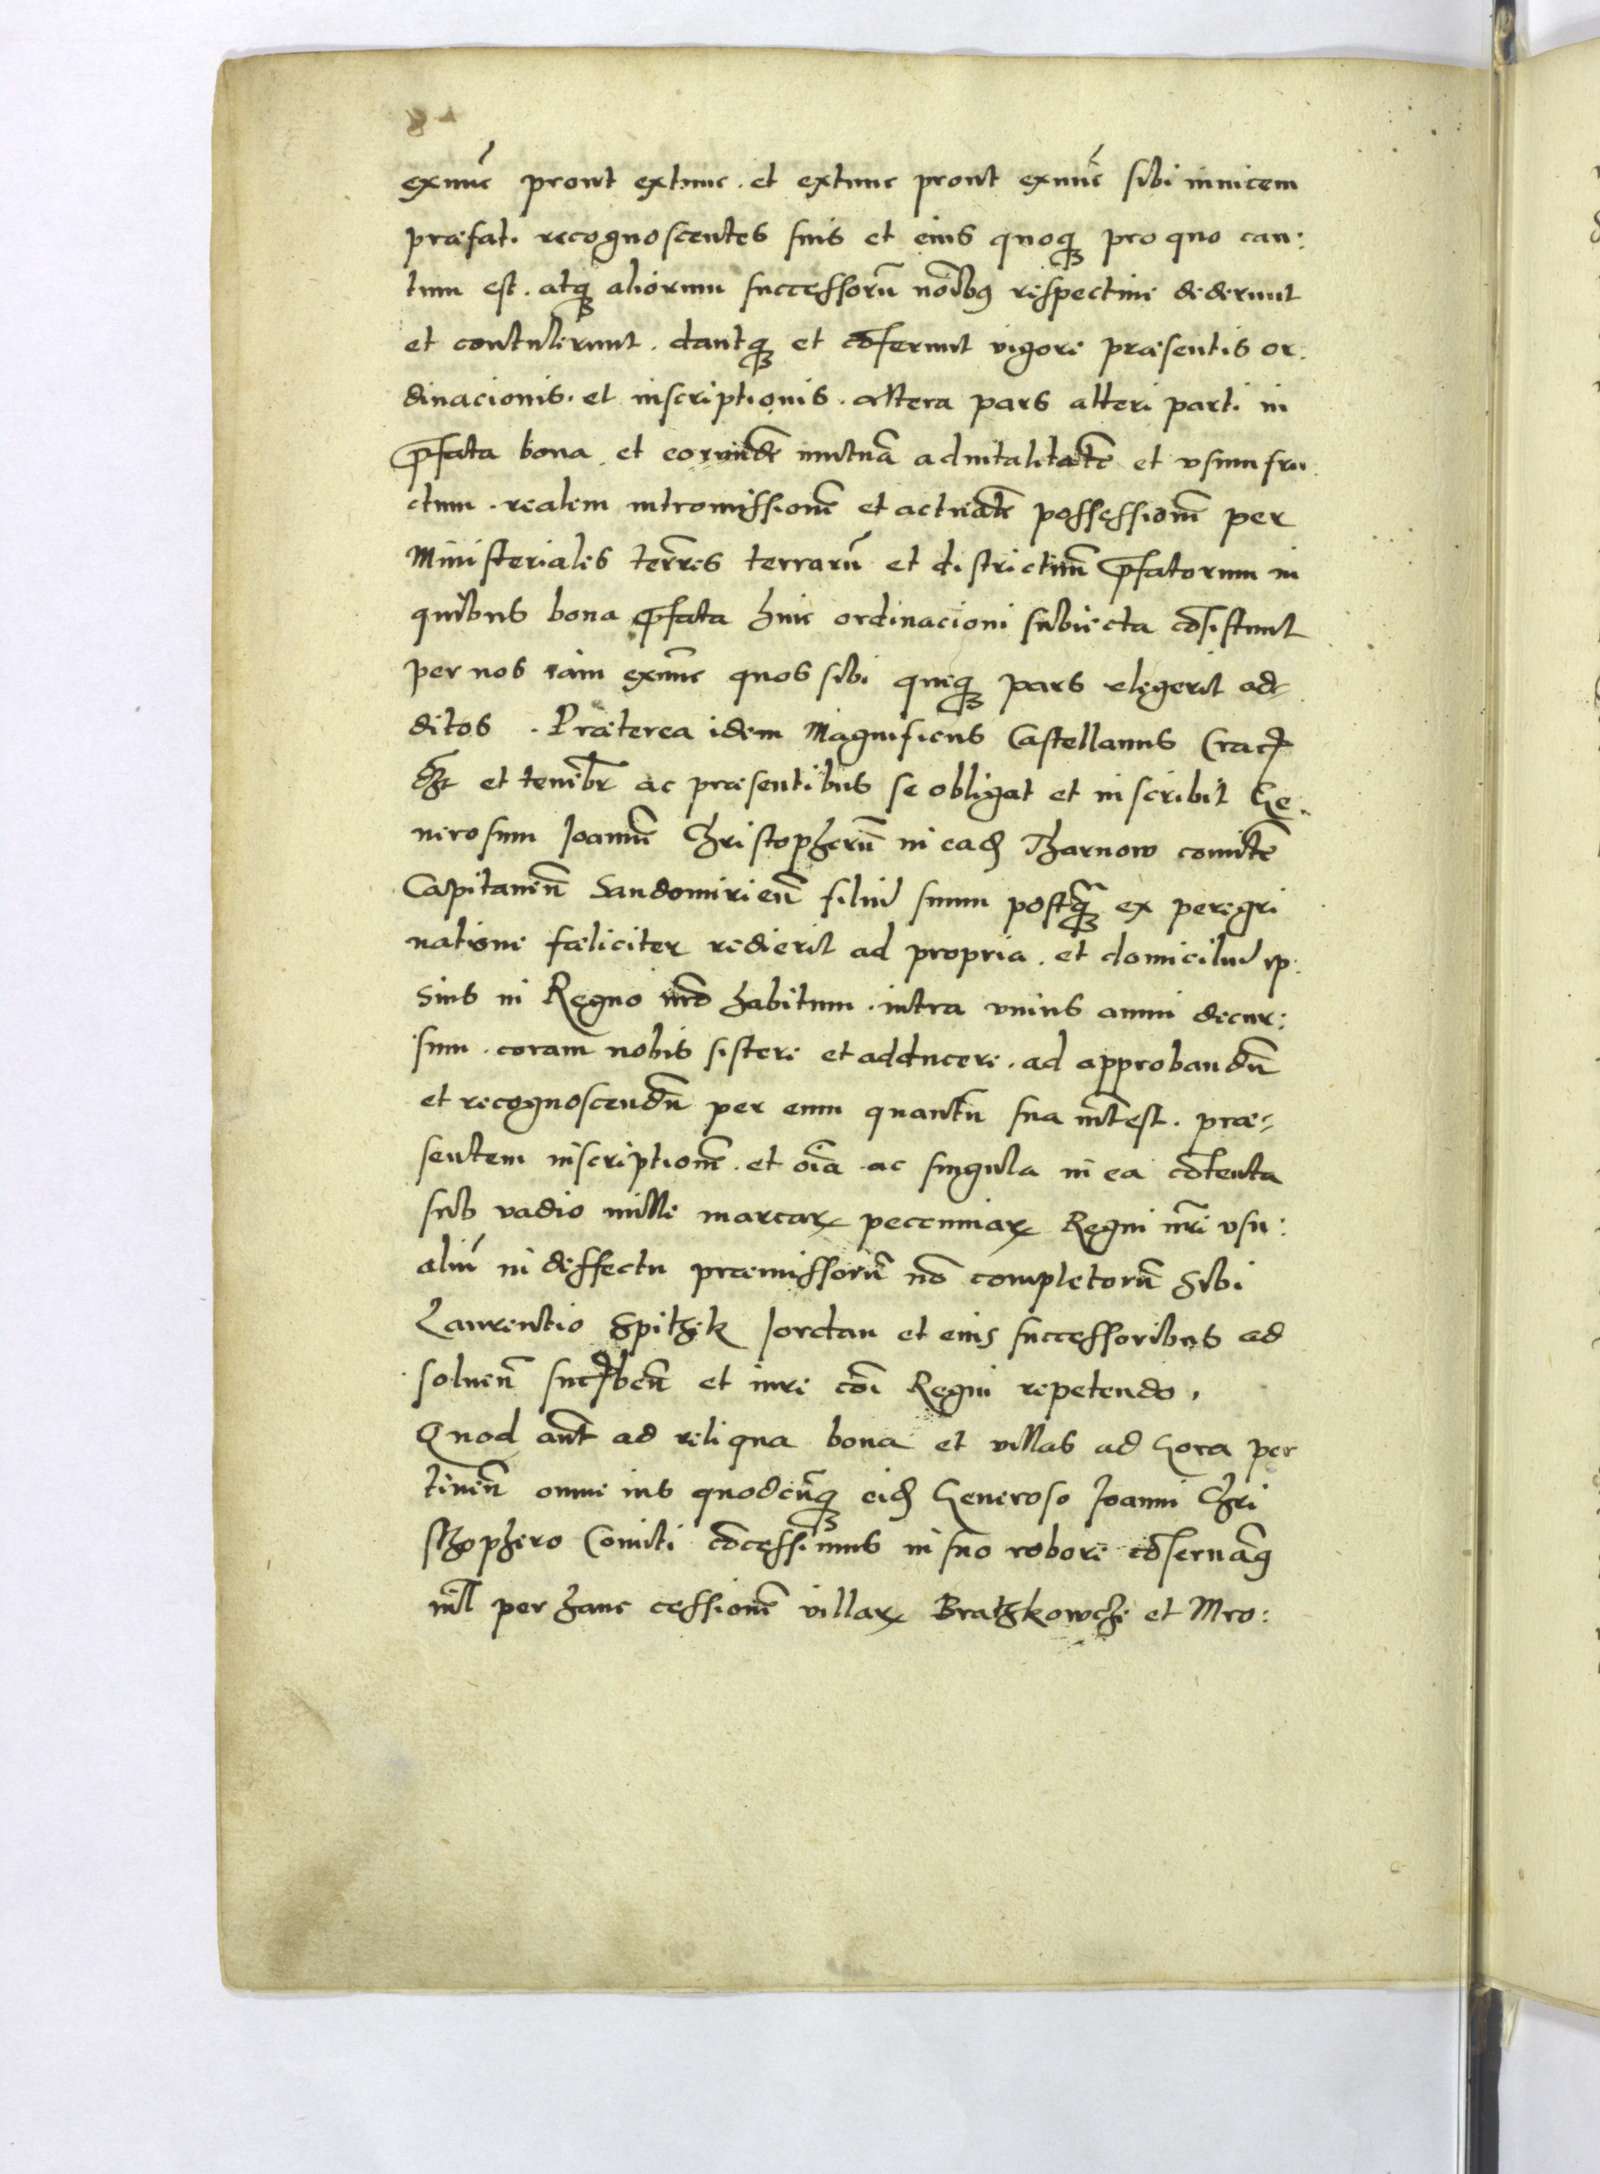 84
exnuc̃ prout extunc. et extunc prout exnuc̃ sibi inuicem
præfati recognoscentes suis et eius quoq; pro quo cau:
tum est. atq; aliorum successorũ noĩbus respectiue dederunt
et contulerunt. dantq; et cõferunt vigore præsentis or:
dinacionis. et inscriptionis. altera pars alteri parti in
p̃fata bona et eorundẽ mutuã aduitalitatẽ et vsumfru
ctum. realem intromissionẽ et actualẽ possessionẽ per
Ministeriales terrẽs terrarũ et districtuũ p̃fatorum in
quibus bona p̃fata huic ordinacioni subiecta cõsistunt
per nos iam exnũc quos sibi queq; pars elegerit ad-
ditos. Præterea idem Magnificus Castellanus Crac̃
et tenebĩt ac præsentibus se obligat et inscribit Ge.
nerosum Joannẽ Christopherũ in eadẽ Tharnow comitẽ
Capitaneũ Sandomirieñ filiũ suum postq̃; ex peregri
natione fæliciter redierit ad propria. et domiciliũ ip:
sius in Regno nrõ habitum. intra vnius anni decur:
sum. coram nobis sistere et adducere. ad approbandũ
et recognoscendũ per eum quantũ sua intẽst. præ-
sentem inscriptionẽ. et oĩa ac singula in ea cõtenta
sub vadio mille marcarꝝ pecuniarꝝ Regni nr̃i vsu:
aliũ in deffectu præmissorũ nõ completorũ Sibi
Laurentio Spithek Jordan et eius successoribus ad
solueñ succũbeñ et iure cõi Regni repetendo.
Quod aũt ad reliqua bona et villas ad Gora per
tineñ omne ius quodcũq; eidẽ Generoso Joanni Chri
sthophero Comiti cõcessimus in suo robore cõseruãq
nil̃ per hanc cessionẽ villarꝝ Brathkowche et Mro: